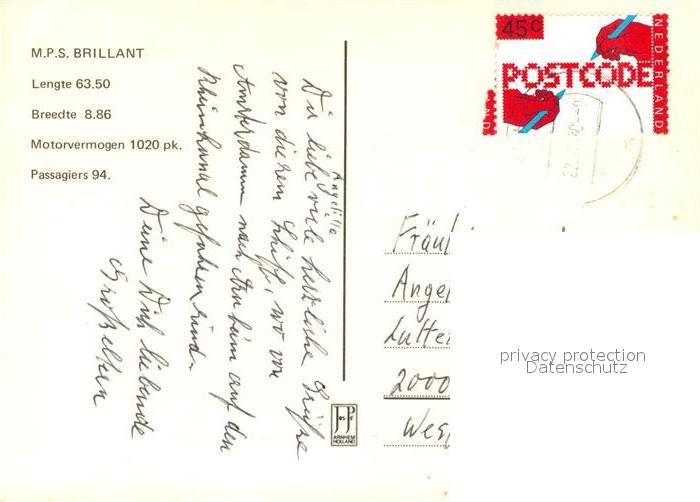 M.P.S. BRILLANT
Lengte 63.50
Breedte 8.86
Motorvermogen 1020 pk.
Passagiers 94.
45c
NEDERLAND
POSTCODE
Du liebe viele herzliche Grüße
Angelika
von diesem Schiff, wo wir von
Amsterdam nach Arnheim auf den
Rheinkanal gefahren sind.
Deine Dich liebende
Großeltern
JosPé
ARNHEM
HOLLAND
Fräul
Angel
Lutte
2000
Wes
privacy protection
Datenschutz